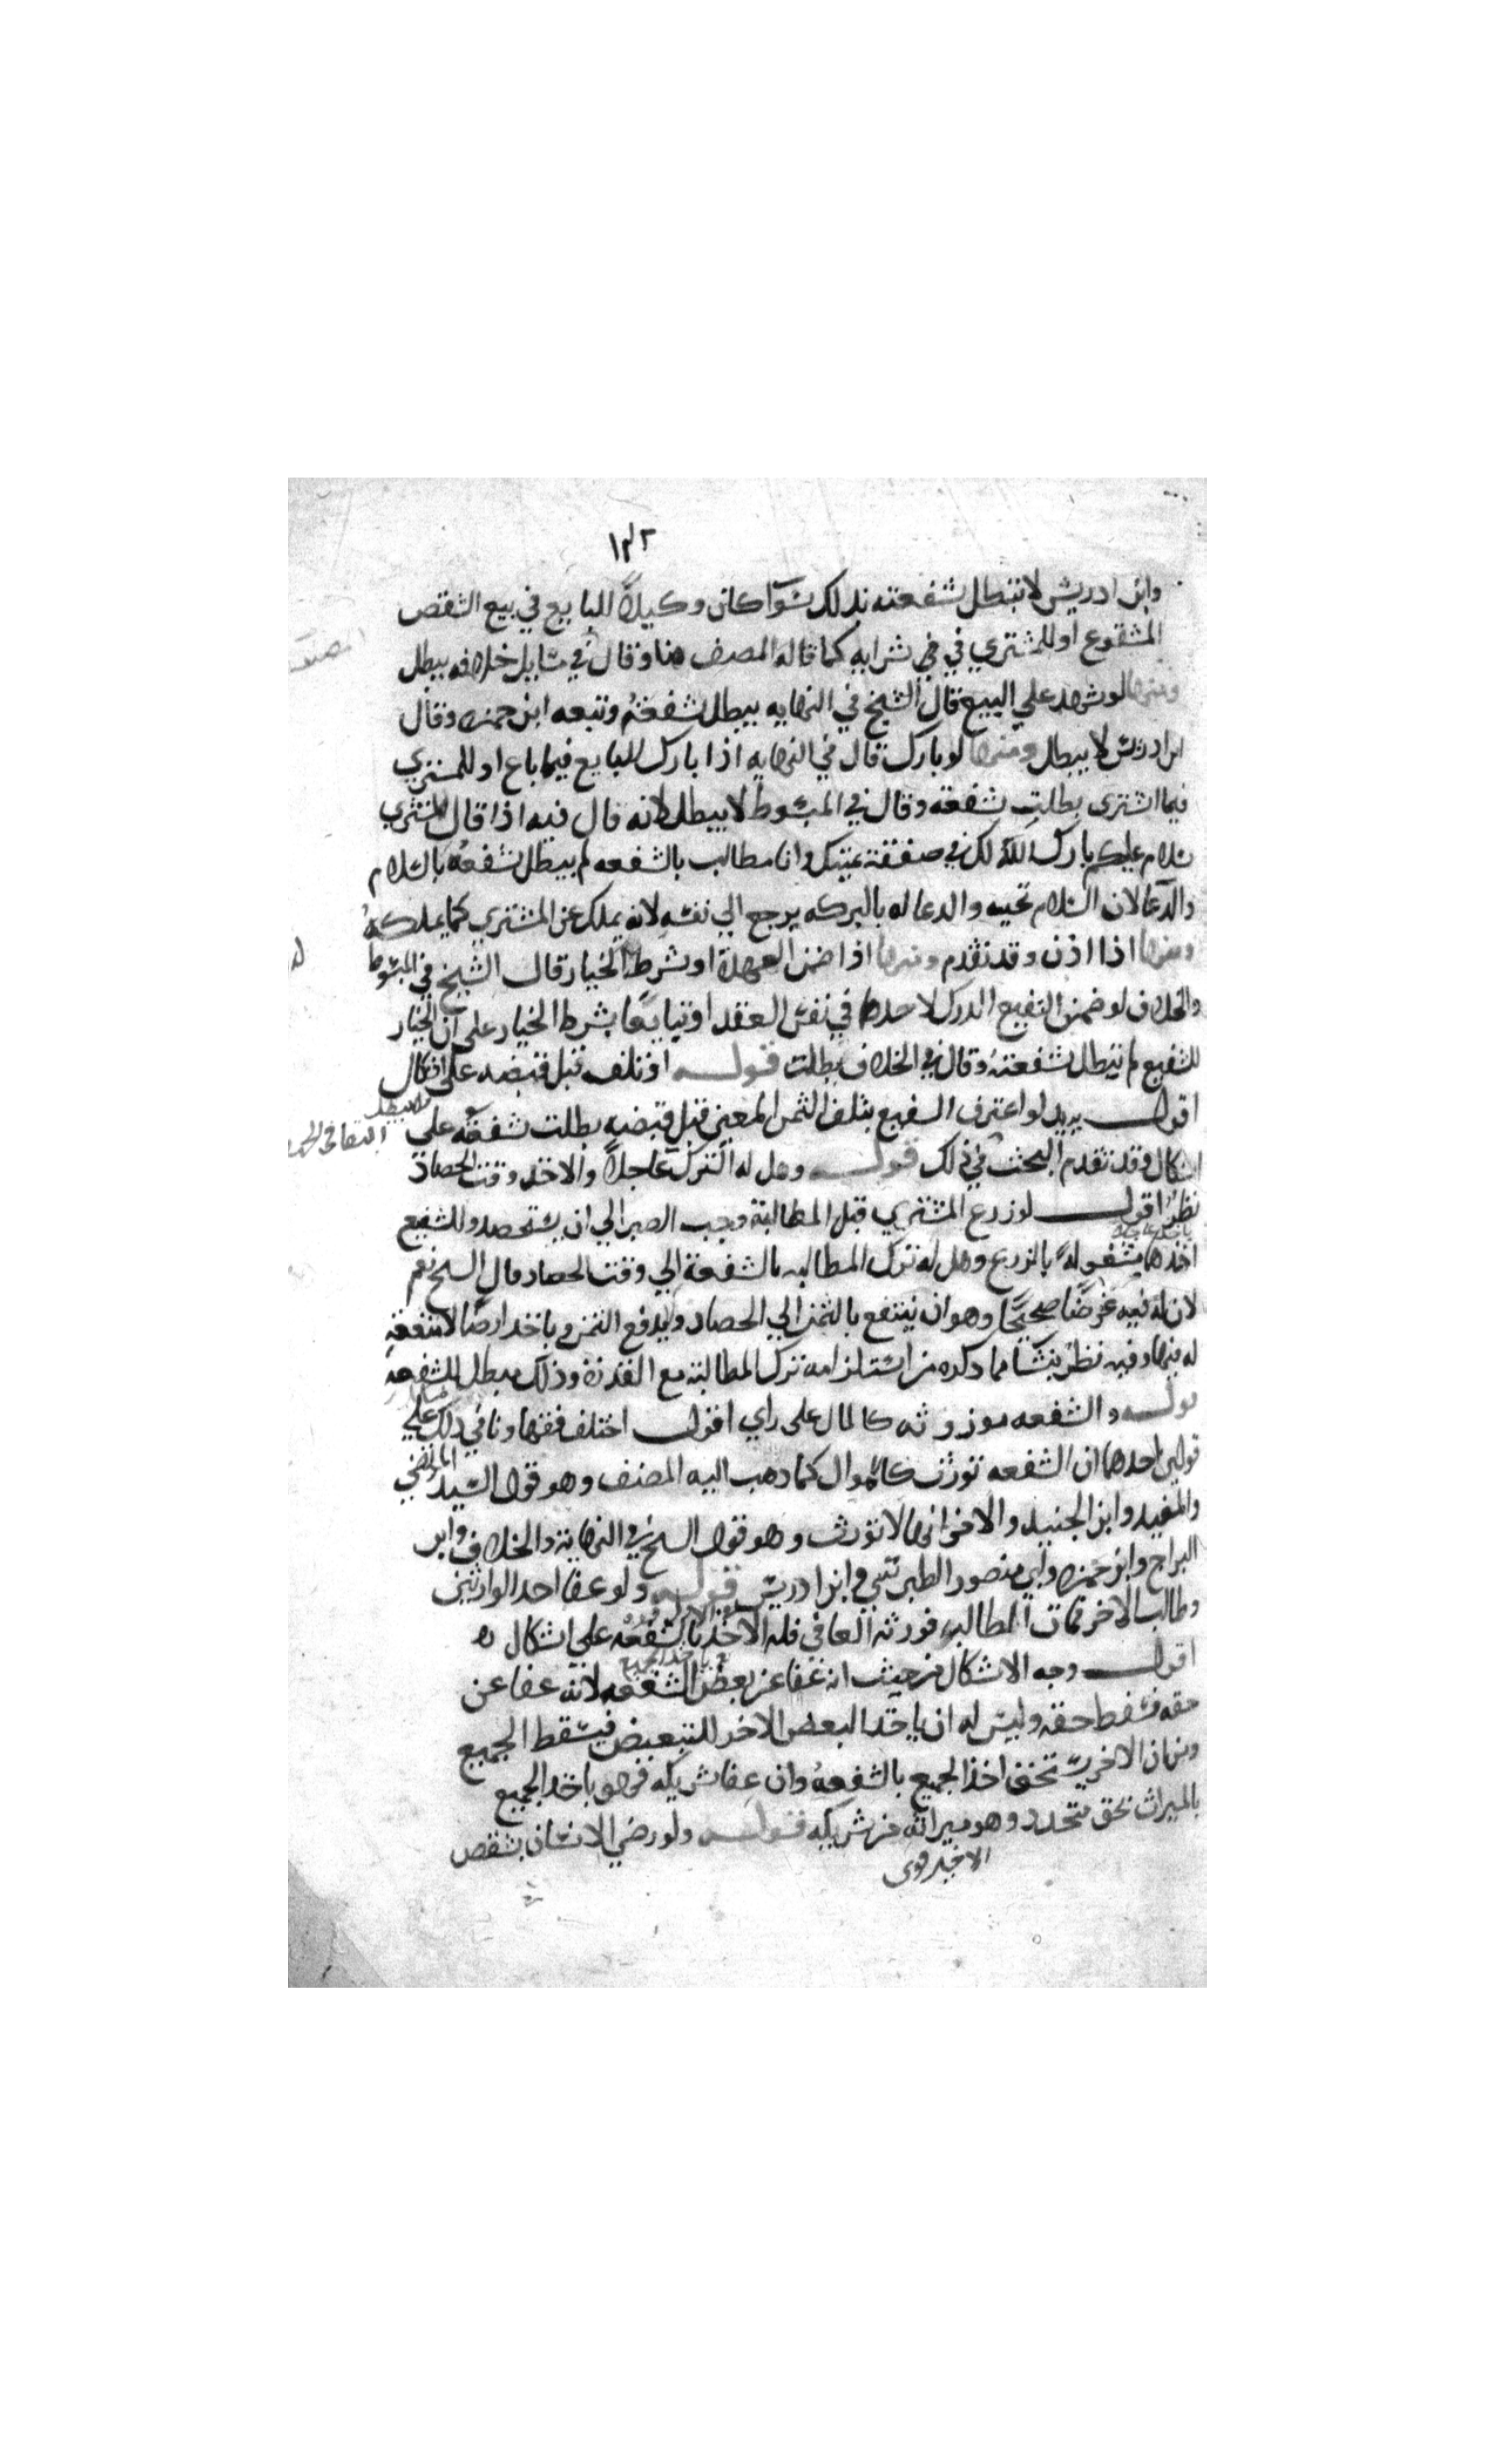 ١٣٢
وابن ادريس لا تبطل شفعته بذلك سوآ كان وكيلاً للبايع في بيع الشقص
المشفوع او للمشتري في في شرايه كما قاله المصنف هنا وقال في مسايل خلافه يبطل
ومنها لو شهد علي البيع قال الشيخ في النهايه يبطل شفعته وتبعه ابن حمزه وقال
ابن ادريس لا يبطل ومنها لو بارك قال في النهايه اذا بارك للبايع فيما باع او للمشتري
فيما اشترى بطلت شفعته وقال في المبسوط لا يبطل لانه قال فيه اذا قال للمشتري
سلام عليكم بارك الله لك في صفقة يمينك وانا مطالب بالشفعه لم يبطل شفعته بالسلام
والدعا لان السلام تحيه والدعا له بالبركه يرجع الي نفسه لانه يملك عن المشتري كما يملكه
ومنها اذا اذن وقد تقدم ومنها اذا ضمن العهدة او شرط الخيار قال الشيخ في المبسوط
والخلاف لو ضمن الشفيع الدرك لاحدهما في نفس العقد او تبايعا بشرط الخيار على ان الخيار
للشفيع لم تبطل شفعته وقال في الخلاف بطلت قوله او تلف قبل قبضه على اشكال
اقول يريد لو اعترف الشفيع بتلف الثمن المعين قبل قبضه بطلت شفعته على
اشكال وقد تقدم البحث في ذلك قوله وهل له الترك عاجلاً والاخذ وقت الحصاد
نظر اقول لو زرع المشتري قبل المطالبة وجب الصبر الي ان يستحصد وللشفيع
اخذها مشغوله بالزرع وهل له ترك المطالبه بالشفعة الي وقت الحصاد قال الشيخ نعم
لان له فيه غرضًا صحيحًا وهو ان ينتفع بالثمن الي الحصاد ولا يدفع الثمن وياخذ ارضًا لا منفعة
له فيها وفيه نظر ينشا مما ذكره من استلزامه ترك المطالبة مع القدرة وذلك مبطل للشفعه
قوله والشفعه موروثه كالمال على راي اقول اختلف فقهاونا في ذلك علي
قولين احدهما ان الشفعه تورث كالاموال كما ذهب اليه المصنف وهو قول السيد المرتضي
والمفيد وابن الجنيد والاخر انها لا تورث وهو قول الشيخ في النهاية والخلاف وابن
البراج وابن حمزه وابي منصور الطبرسي وابن ادريس قوله ولو عفا احد الوارثين
وطالب الاخر فمات المطالب فورثه العافي فله الاخذ بالشفعه علي اشكال
اقول وجه الاشكال من حيث انه عفا عن بعض الشفعه لانه عفا عن
حقه فسقط حقه وليس له ان ياخذ البعض الاخر للتبعيض فيسقط الجميع
ومن ان الاخر يستحق اخذ الجميع بالشفعه وان عفا شريكه فهو ياخذ الجميع
بالميراث بحق متجدد وهو ميراثه من شريكه قوله ولو رضي الانسان بشقص
الاخير قوى